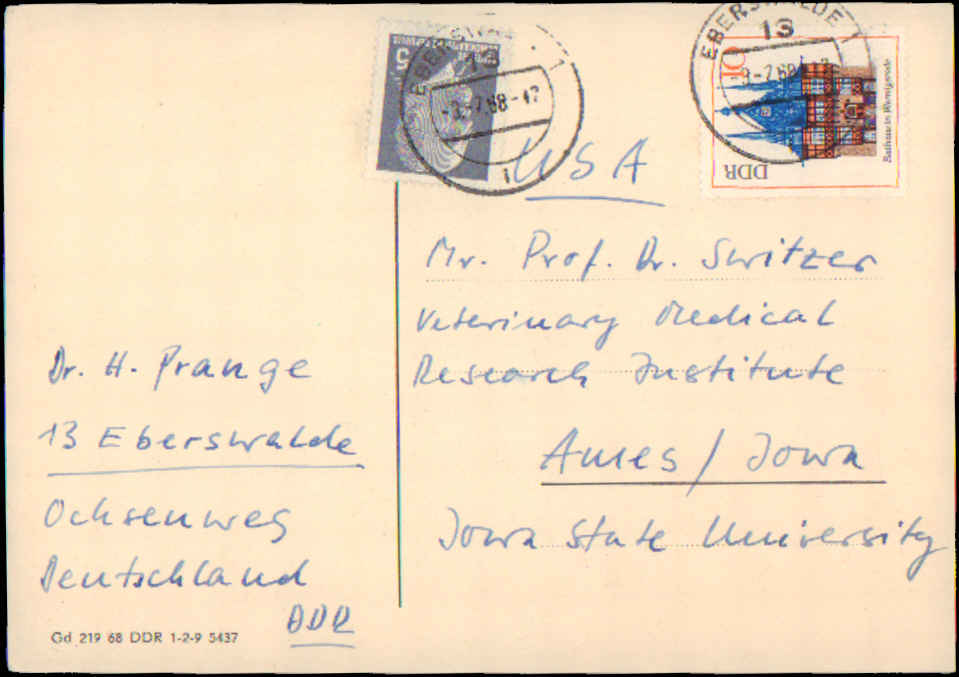 EBERSWALDE 1
13
-3.-7.68-17
5
EBERSWALDE 1
13
10
Rathaus in Wernigerode
DDR
USA
Mr. Prof. Dr. Switzer
Veterinary Medical
Research Institute
Ames / Iowa
Iowa State University
Dr. H. Prange
13 Eberswalde
Ochsenweg
Deutschland
DDR
Gd 219 68 DDR 1-2-9 5437